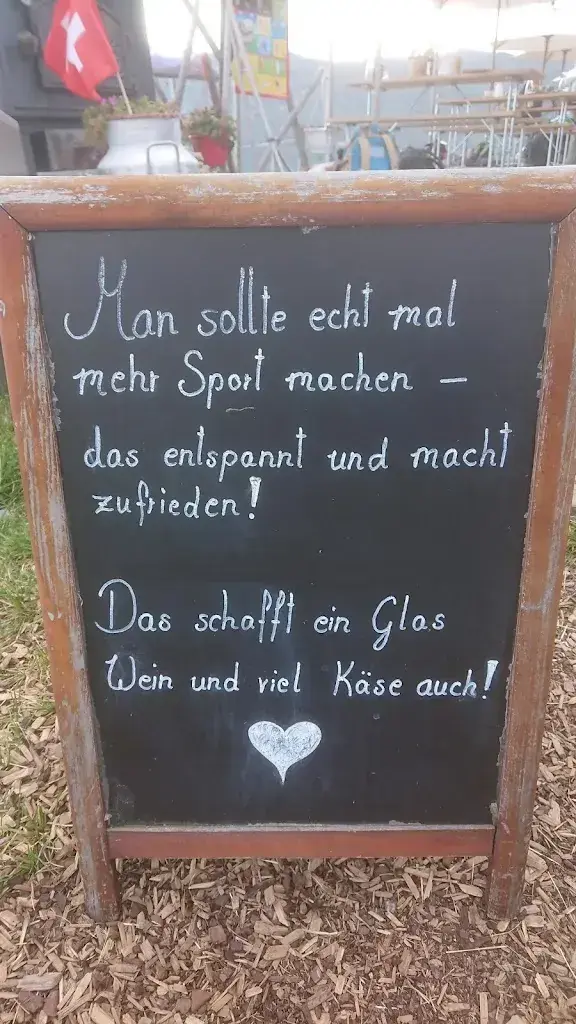 Man sollte echt mal
mehr Sport machen –
das entspannt und macht
zufrieden!
Das schafft ein Glas
Wein und viel Käse auch!